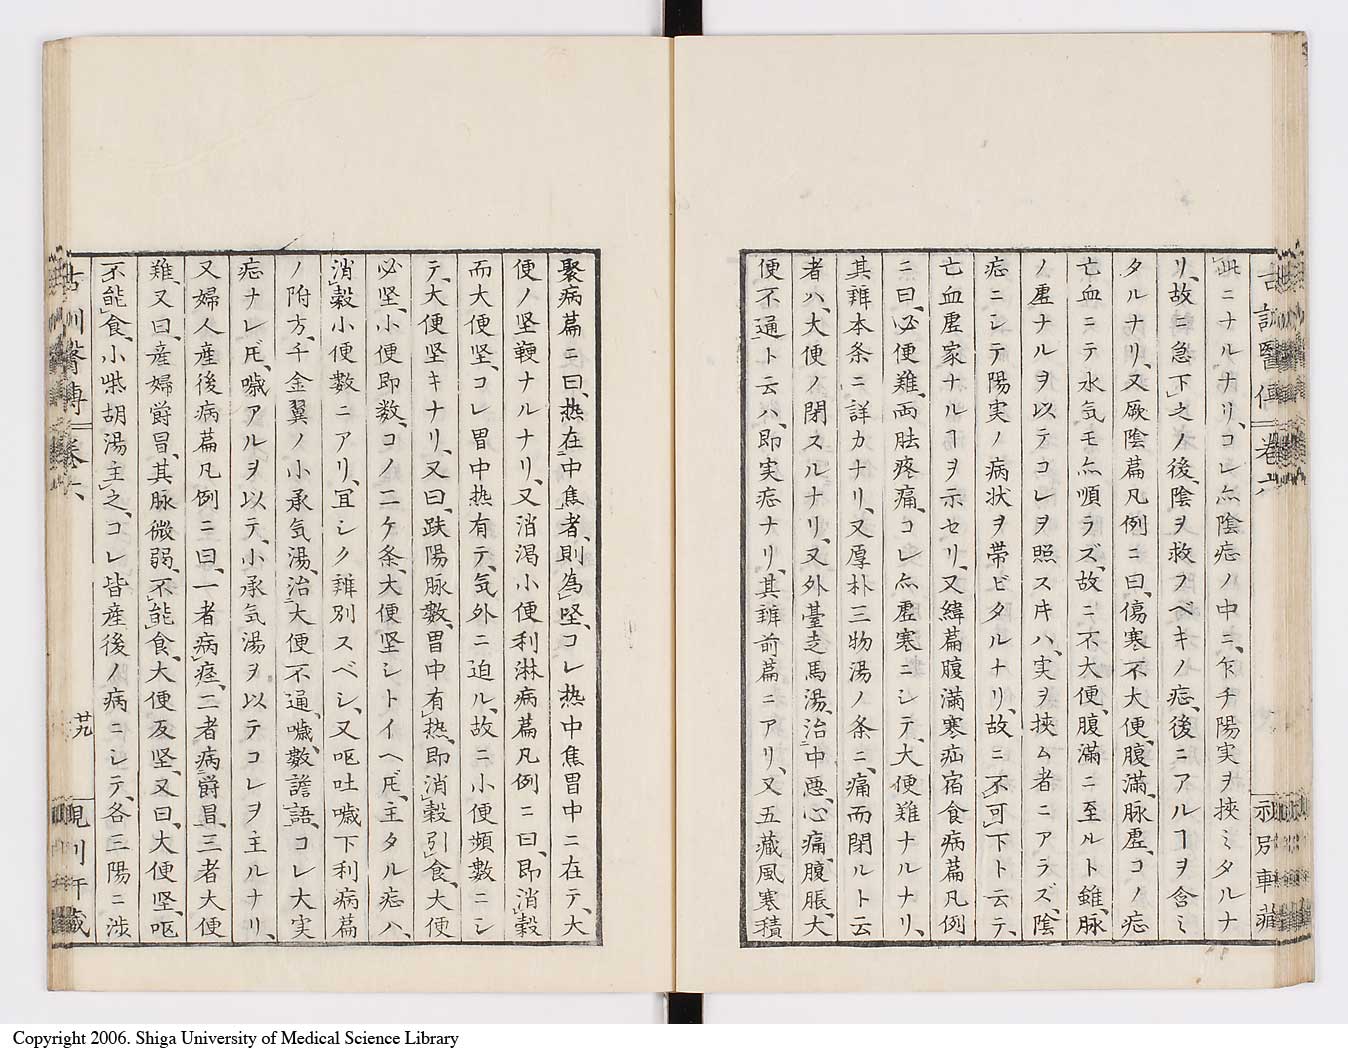 此ニナルナリ、コレ亦陰症ノ中ニ、乍チ陽実ヲ挾ミタルナ
リ、故ニ急下之ノ後、陰ヲ救フベキノ症、後ニアルヿヲ含ミ
タルナリ、又厥陰篇凡例ニ曰、傷寒不大便、腹滿、脉虚、コノ症
亡血ニテ水気モ亦順ラズ、故ニ不大便、腹滿ニ至ルト雖、脉
ノ虚ナルヲ以テコレヲ照スキハ、実ヲ挾ム者ニアラズ、陰
症ニシテ陽実ノ病状ヲ帯ビタルナリ、故ニ不可下ト云テ、
亡血虚家ナルヿヲ示セリ、又緯篇腹滿寒疝宿食病篇凡例
ニ曰、必便難、両胠疼痛、コレ亦虚寒ニシテ、大便難ナルナリ、
其辨本条ニ詳カナリ、又厚朴三物湯ノ条ニ、痛而閉ルト云
者ハ、大便ノ閉スルナリ、又外臺走馬湯、治中悪、心痛、腹脹、大
便不通ト云ハ、即実症ナリ、其辨前篇ニアリ、又五蔵風寒積
聚病篇ニ曰、热在中焦者、則為堅、コレ热中焦胃中ニ在テ、大
便ノ坚鞕ナルナリ、又消渇小便利淋病篇凡例ニ曰、即消穀
而大便坚、コレ胃中热有テ、気外ニ迫ル、故ニ小便頻數ニシ
テ、大便坚キナリ、又曰、趺陽脉數、胃中有热、即消穀引食、大便
必坚、小便即数、コノ二ケ条、大便坚シトイヘ𪜈、主タル症ハ、
消穀小便數ニアリ、宜シク辨別スベシ、又呕吐噦下利病篇
ノ附方、千金翼ノ小承気湯、治大便不通、噦、數譫語、コレ大実
症ナレ𪜈、噦アルヲ以テ、小承気湯ヲ以テコレヲ主ルナリ、
又婦人産後病篇凡例ニ曰、一者病痙、二者病欝冒、三者大便
難、又曰、産婦欝冒、其脉微弱、不能食、大便反坚、又曰、大便坚、呕
不能食、小柴胡湯主之、コレ皆産後ノ病ニシテ、各三陽ニ渉
古訓醫傳 卷六 廿九